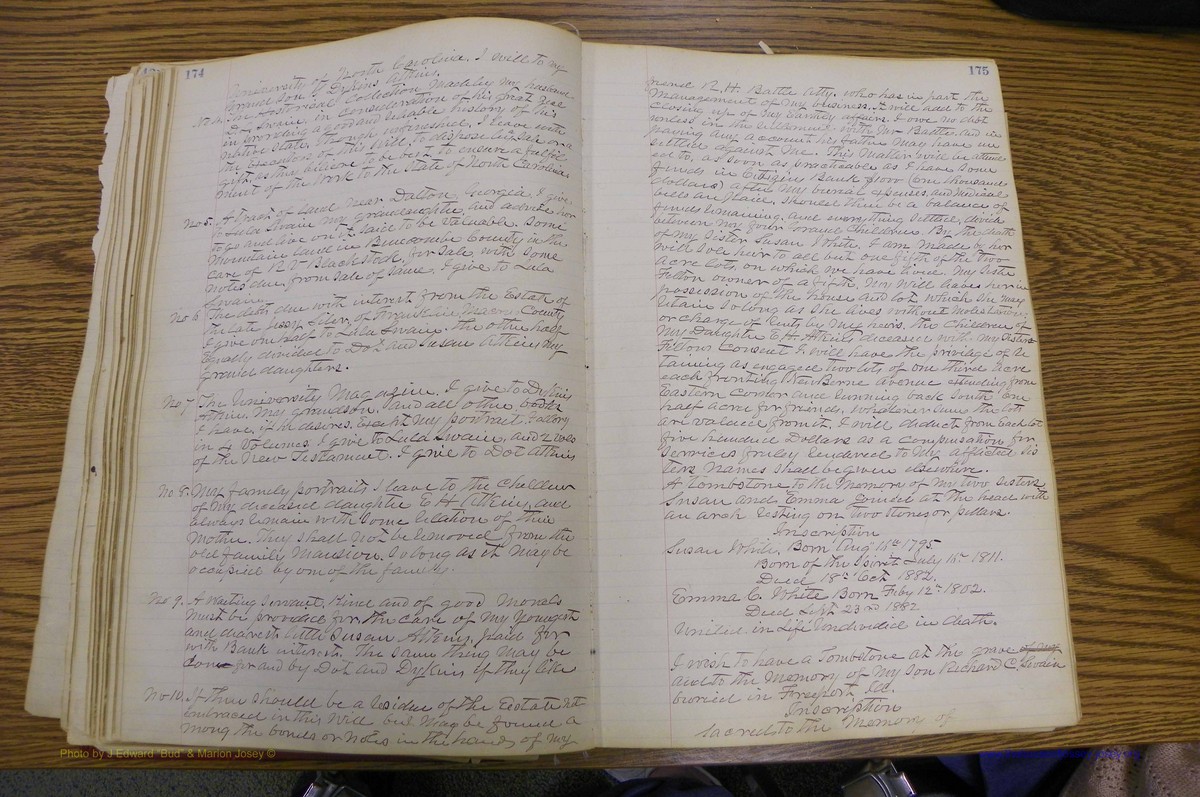 174
University of North Carolina. I will to my
Grand Son D. Dykins Atkins.
No 4. The Historical Collection Made by my husband
Dr. Swain, in consideration of his great zeal
in providing a good and reliable history of his
native State, though unfinished, I leave with
the Executors of this Will to dispose by Sale or a
gift as they believe to be best to ensure a fulfil
ment of the work to the State of North Carolina
No 5. A tract of Land near Dalton Georgia, I give
to Lula Swain my granddaughter, and advise her
to go and live on it, said to be valuable. Some
Mountain land in Buncombe County in the
care of R. V. Blackstock, for sale, with some
notes due from sale of same. I give to Lula
Swain.
No 6 The debt due with interest from the Estate of
the late Jessy Siler, of Franklin Macon County
I give one half to Lula Swain. The other half
Equally divided to Dot and Susan Atkins my
grand daughters.
No 7 The University Magazine. I give to Dykins
Atkins, my grandson, and all other books
I have, if he desires. Except my portrait Gallery
in 4 Volumes. I give to Lula Swain, and 2 vols
of the New Testament. I give to Dot Atkins
No 8. May family portraits I leave to the Children
of my deceased daughter E H Atkins, and
always remain with some relation of their
Mother. They shall not be removed from the
old family Mansion. So long as it may be
occupied by one of the family.
No 9. A waiting Servant, Kind and of good Morals
Must be provided for the care of my Youngest
and dearest little Susan Atkins, paid for
with Bank interest. The same thing may be
done for and by Dot and Dykins if they like
No 10. If there should be a residue of the Estate not
embraced in this Will but may be found a
mong the bonds or Notes in the hands of my
175
friend R. H. Battle Atty. who has in part the
Management of my business. It will add to the
closing up of my Earthly affairs. I owe no debt
unless in the settlement with Mr Battle and in
paying any account his father may have un
settled against me. This Matter will be attend
ed to, as soon as practicable as I have some
funds in Citizens Bank $1000 (One thousand
dollars) after my burial expenses, and Medical
bills are paid. Should there be a balance of
funds remaining and everything settled, divide
between my four Grand Children. By the death
of my Sister Susan White, I am made by her
will Sole heir to all but one fifth of the two
acre lots, on which we have lived. My Sister
Felton owner of a fifth. My Will leaves her in
possession of the house and lot which She may
retain So long as She lives without molestation
or charge of Rents by my heirs, the Children of
My Daughter E. H. Atkins deceased with. My Sister
Feltons consent I will have the privilege of re
taining as engaged two lots of one third acre
each fronting New Berne avenue extending from
Eastern Corner and running back South one
half acre for friends, whatever sums the lots
are valued from it. I will deduct from each lot
five hundred Dollars as a compensation for
Services freely rendered to my afflicted Sis
ters Names shall be given elsewhere.
A Tombstone to the Memory of my two Sisters
Susan and Emma Erected at the head with
an arch resting on two stones or pillars.
Inscription
Susan White. Born Aug 11th 1795.
Born of the Spirit July 18th 1811.
Died 18th Oct 1882.
Emma C. White Born Feby 12th 1802.
Died Sept 23rd 1882
United in Life Undivided in death.
I wish to have a Tombstone at the grave of my
and to the Memory of my Son Richard C. Swain
buried in Freeport Ill.
Inscription
Sacred to the Memory of
Photo by J Edward "Bud" & Marion Josey ©